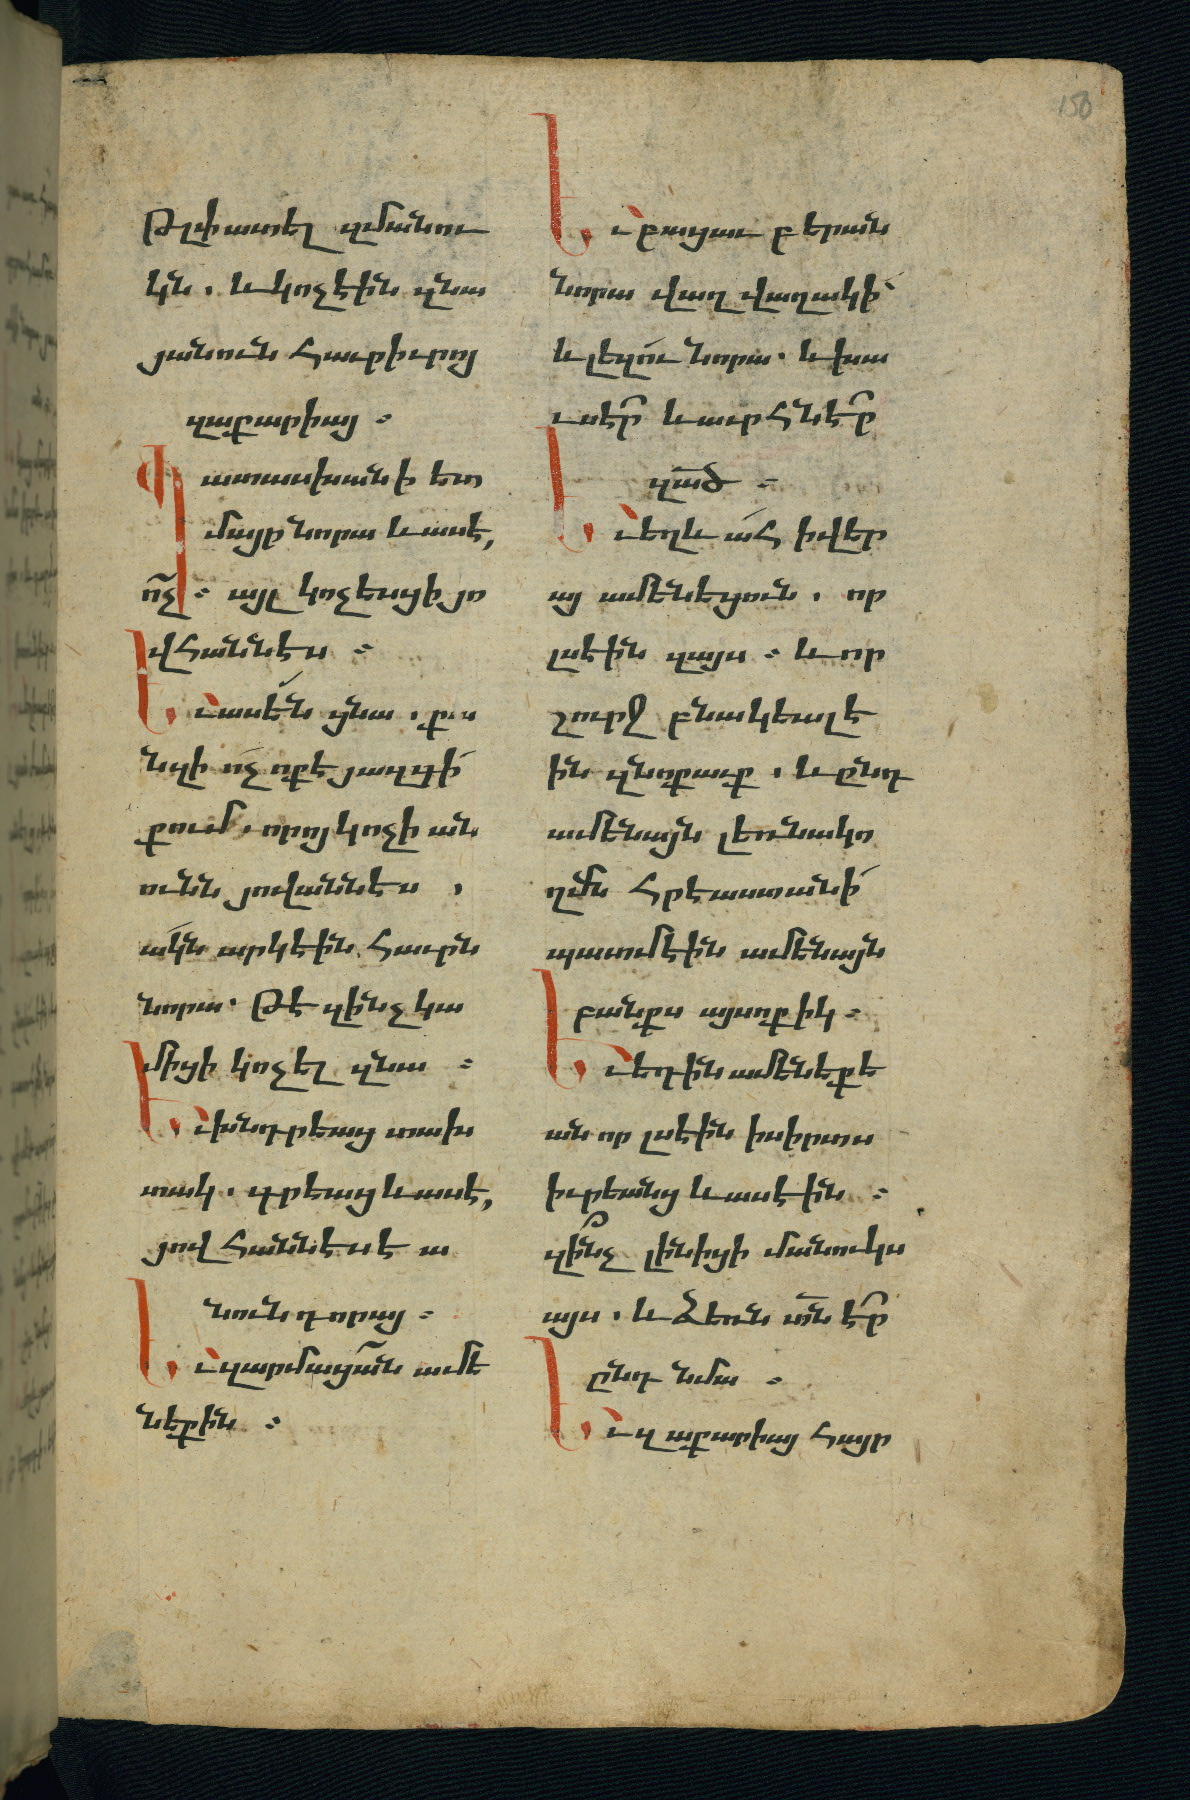 150
թլփատել զմանու
կն . և կոչէին զնա
յանուն հաւր իւրոյ
զաքարիայ :
Պատասխանի ետ
մայր նորա և ասէ,
ո՛չ : այլ կոչեսցի յո
վհաննէս :
Եւ ասեն ցնա . քա
նզի ոչ ոք է յազգի
քում, որոյ կոչի ան
ունն յովաննէս ,
ակն արկէին հաւրն
նորա . թէ զինչ կա
միցի կոչել զնա :
Եւ խնդրեաց տախ
տակ . գրեաց և ասէ,
յովհաննէս է ա
նուն դորայ :
Եւ զարմացան ամե
նեքին :
Եւ բացաւ բերան
նորա վաղվաղակի
և լեզու նորա . և խա
ւսէր և աւրհնէր
զա՟ծ :
Եւ եղև ահ ի վեր
այ ամենեցուն . որ
լսէին զայս : և որ
շուրջ բնակեալ է
ին զնոքաւք . և ընդ
ամենայն լեռնակո
ղմն հրէաստանի
պատմէին ամենայն
բանքս այսոքիկ :
Եւ եդին ամենեքե
ան որ լսէին ի սիրտս
իւրեանց և ասէին :
զի՞նչ լինիցի մանուկս
այս . և ձեռն տ՟ն էր
ընդ նմա :
Եւ զաքարիայ հայր